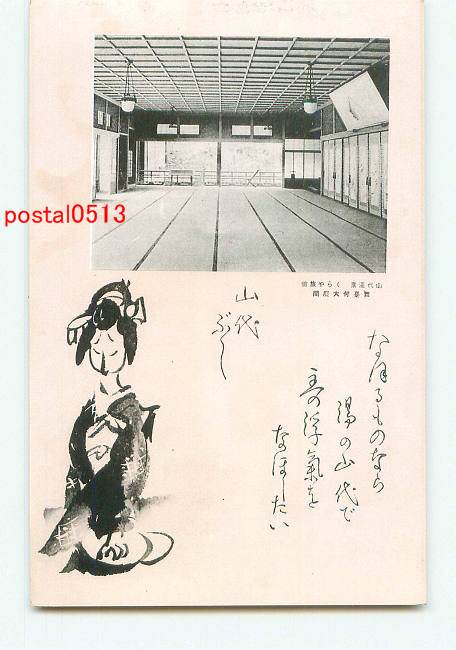 postal0513
山代温泉 くらや旅館
舞臺付大廣間
山代
ぶし
なほるものなら
湯の山代で
主の浮氣を
なほしたい